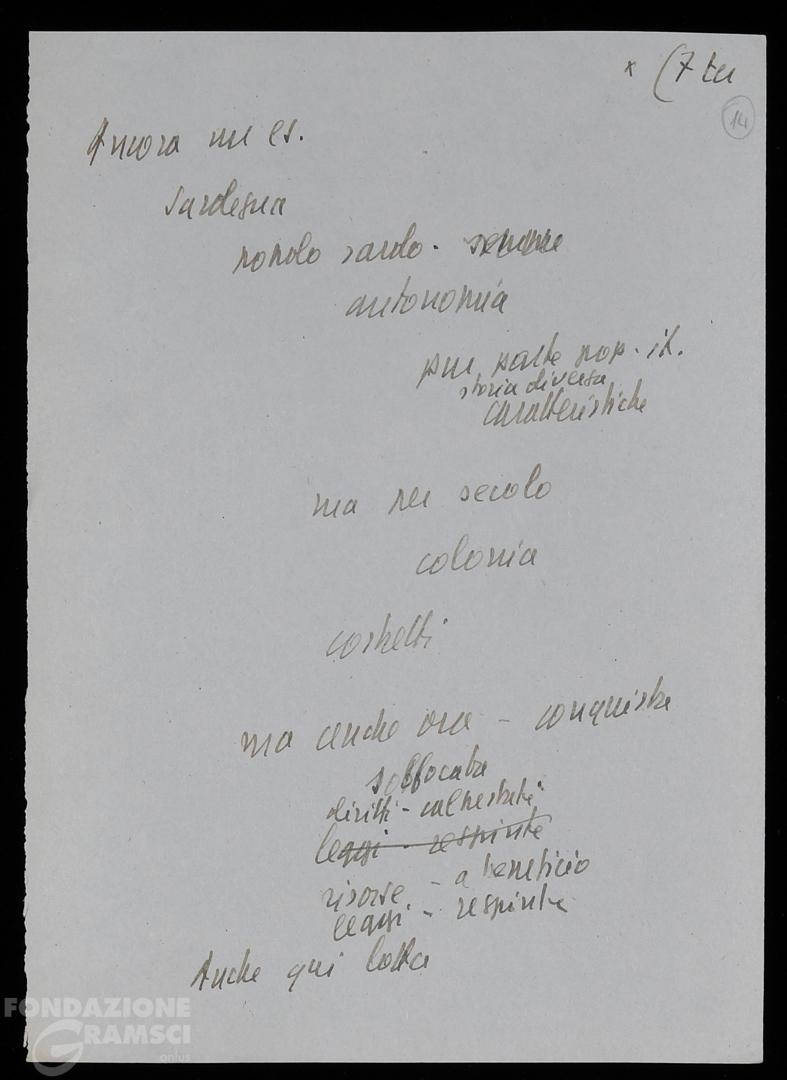 * (7 ter
14
Ancora un es.
Sardegna
popolo sardo. sempre
autonomia
pur parte pop. it.
storia diversa
caratteristiche
ma per secolo
colonia
ma anche ora - conquista
soffocata
diritti - calpestati
leggi - respinte
risorse - a beneficio
leggi - respinte
Anche qui lotta
FONDAZIONE
GRAMSCI
onlus